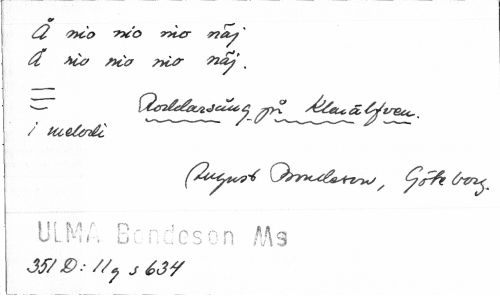 Å nio nio nio näj
Å nio nio nio näj.
Roddarsång på Klarälfven.
i melodi
August Bondeson, Göteborg.
ULMA Bondeson Ms
351 D: 11 g s 634